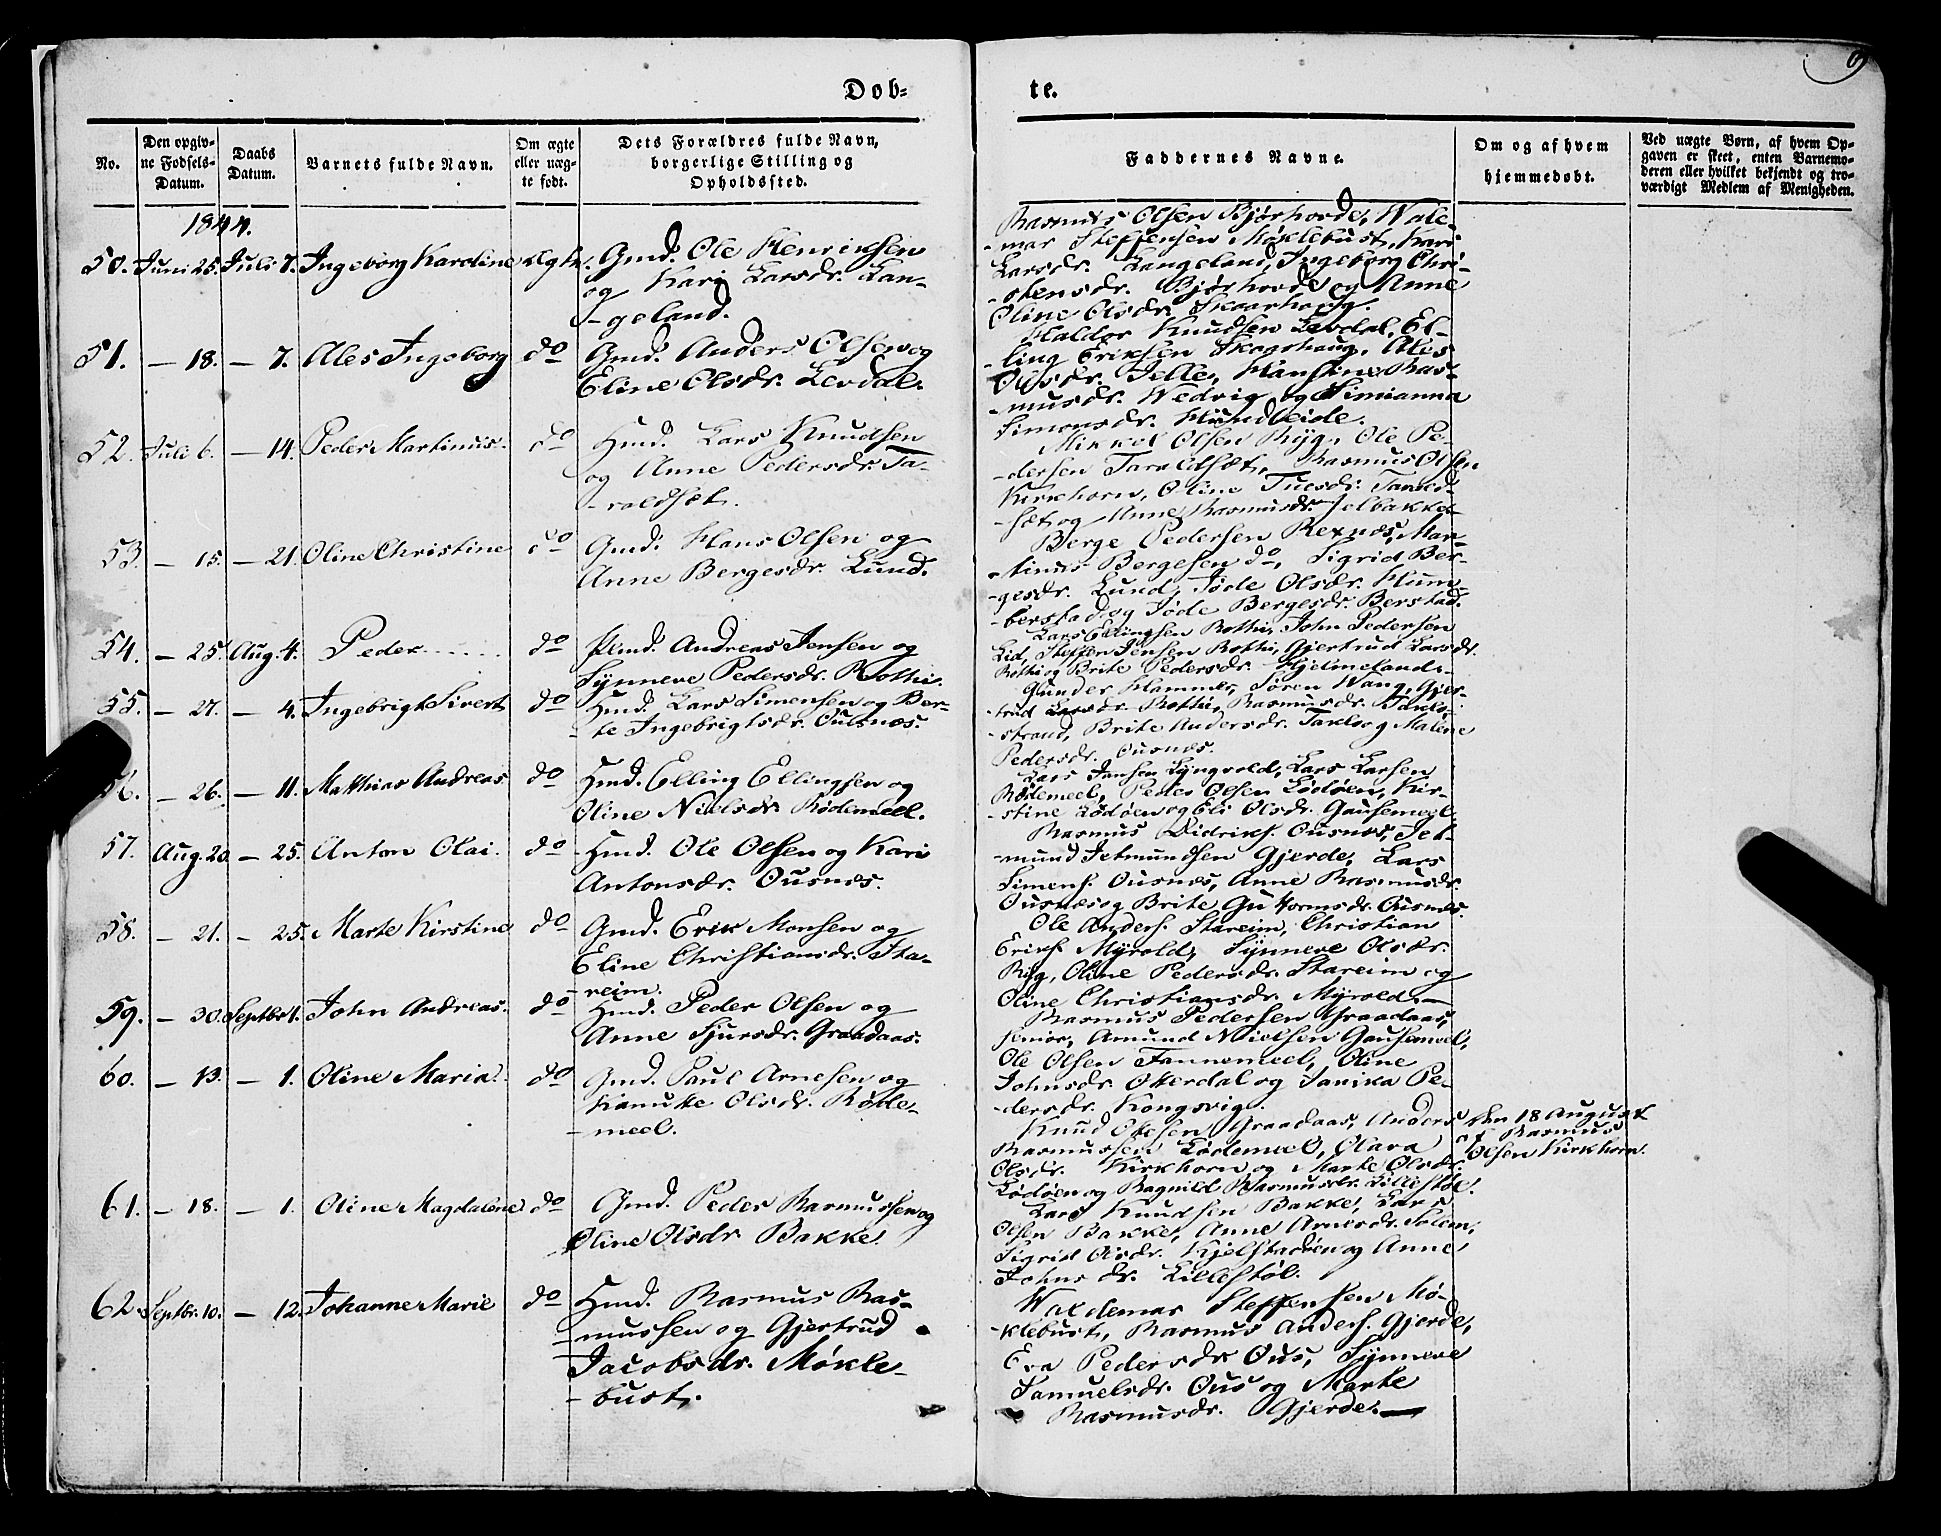 Døb-
te.
9
No.
Den opgiv-
ne Fødsels-
Datum.
Daabs
Datum.
Varnets fulde Navn.
Om ægte
eller uæg-
te født.
Dets Forældres fulde Navn,
borgerlige Stilling og
Opholdssted.
Faddernes Navne.
Om og af hvem
hjemmedøbt.
Ved uægte Børn, af hvem Op-
gaven er skeet, enten Barnemo-
deren eller hvilket bekjendt og tro-
værdigt Medlem af Menigheden.
1844.
50. Juni 25. Juli 7. Ingeborg Karoline Ægte. Gmd. Ole Henriksen
og Kari Larsdr. Lan-
-geland.
Rasmus Olsen Bjørhovde, Wale-
-mar Steffensen Møklebust, Kari
Larsdr. Langeland, Ingeborg Chri-
-stensdr. Bjørhovde og Anne
Oline Olsdr. Skaarhoug.
51. – 18. – 7. Ales Ingeborg do Gmd. Anders Olsen og
Eline Olsdr. Levdal.
Haldor Knudsen Levdal, El-
-ling Eriksen Skogshaug, Ales
Olsdr. Telle, Hansine Ras-
-musdr. Wedvig og Simianna
Simonsdr. Hundeide.
52. Juli 6. – 14. Peder Martinus. do Hmd. Lars Knudsen
og Anne Pedersdr. Ta-
-raldset.
Mikkel Olsen Ryg, Ole Pe-
-dersen Taraldsæt, Rasmus Olsen
Kirkhorn, Oline Tuesdr. Tarald-
-sæt og Anne Rasmusdr. Selbakke.
53. – 15. – 21. Oline Christine do Gmd. Hans Olsen og
Anne Bergesdr. Lund.
Berge Pedersen Rexnæs, Mar-
-tinus Bergesen do, Sigrid Ber-
-gesdr. Lund, Jøde Olsdr. Hum-
-berstad og Jøde Bergesdr. Berstad.
54. – 25. Aug. 4. Peder do Plmd. Andreas Jensen og
Synneve Pedersdr. Rothi.
Lars Ellingsen Rothi, John Pedersen
Lid, Steffen Jensen Rothi, Gjertrud Larsdr.
Rothi og Brite Pedersdr. Hjelmeland.
55. – 27. – 4. Ingebrigt Sivert do Hmd. Lars Simensen og Ber-
-te Ingebrigtsdr. Ousnæs.
Gunder Hammer, Søren Wang, Gjer-
-trud Larsdr. Rothi, Rasmusdr.
-strand, Brite Andersdr. og Malene
Pedersdr. Ousnæs.
56. – 26. – 11. Matthias Andreas do Hmd. Elling Ellingsen og
Oline Nielsdr. Rødemeel.
Lars Jansen Lyngvold, Lars Larsen
Rødemeel, Peder Olsen Lødøen, Kir-
-stine Lødøen og Eli Olsdr. Gausemeel.
57. Aug. 20. – 25. Anton Olai. do Hmd. Ole Olsen og Kari
Antonsdr. Ousnæs.
Rasmus Didriks. Ousnæs, Jet-
-mund Jetmundsen Gjerde, Lars
Simens. Ousnæs, Anne Rasmusdr.
Ousnæs og Brite Guttormsdr. Ousnæs.
58. – 21. – 25. Marte Kirstine do Gmd. Erik Monsen og
Eline Christiansdr. Sta-
-reim.
Ole Anders. Stareim, Christian
Eriks. Myrold, Synneve Olsdr.
Ryg, Oline Pedersdr. Stareim og
Oline Christiansdr. Myrold.
59. – 30. Septbr. 1. John Andreas. do Hmd. Peder Olsen og
Anne Sjursdr. Graadaas.
Rasmus Pedersen Graadaas,
senior, Amund Nielsen Gausemeel,
Ole Olsen Tannemeel, Oline
Johnsdr. Otterdal og Janika Pe-
-dersdr. Kongsvig.
60. – 13. – 1. Oline Maria. do Gmd. Paul Arnesen og
Kanutte Olsdr. Røde-
-meel.
Knud Olesen Graadaas, Anders
Rasmussen Lødemeel, Olava
Olsdr. Kirkhorn og Marte Olsdr.
Lødøen og Ragnild Rasmusdr. Lillestøl.
Den 18 August
af Rasmus
Olsen Kirkhorn.
61. – 18. – 1. Oline Magdalene do Gmd. Peder Rasmussen og
Oline Olsdr. Bakke.
Lars Knudsen Bakke, Lars
Olsen Bakke, Anne Arnesdr. Solem,
Sigrid Olsdr. Kjelstadøen og Anne
Johnsdr. Lillestøl.
62. Septbr. 10. – 12. Johanne Marie do Hmd. Rasmus Ras-
-mussen og Gjertrud
Jacobsdr. Møkle-
-bust.
Waldemar Steffensen Mø-
-klebust, Rasmus Anders. Gjerde,
Eva Pedersdr. Ous, Synneve
Samuelsdr. Ous og Marte
Rasmusdr. Gjerde.